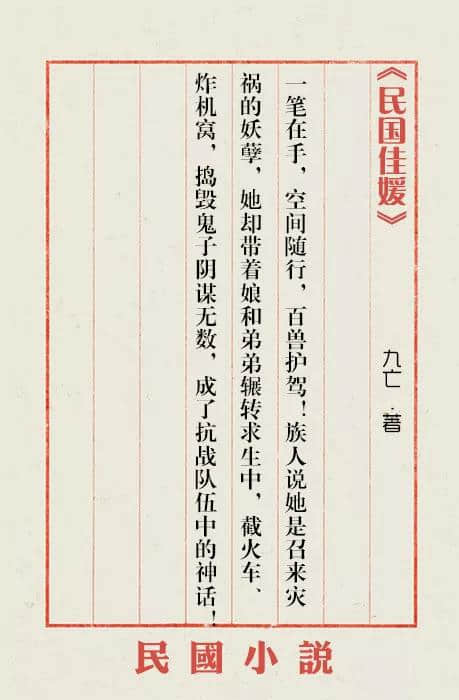 《民国佳媛》
九亡·著
一笔在手，空间随行，百兽护驾！族人说她是召来灾
祸的妖孽，她却带着娘和弟弟辗转求生中，截火车、
炸机窝，捣毁鬼子阴谋无数，成了抗战队伍中的神话！
民國小説